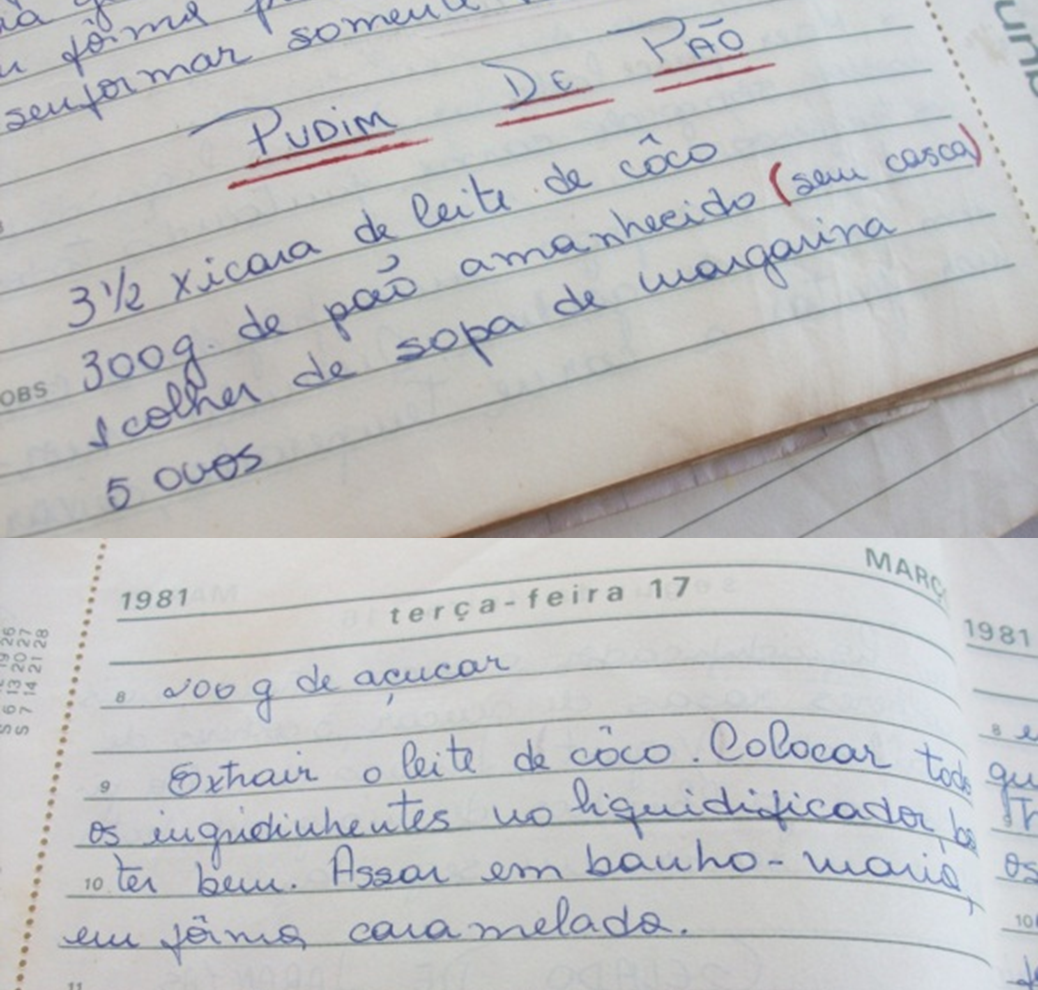 fôrma
senformar somente
PUDIM DE PÃO
3 1/2 xicara de leite de côco
300g. de paõ amanhecido (sem casca)
OBS
1 colher de sopa de margarina
5 ovos
1981
terça-feira 17
MARÇ
1981
8 200 g de açucar
8
9 Extrair o leite de côco. Colocar todo
qu
os ingridinhentes no liquidificador, ba
10 ter bem. Assar em banho-maria,
os
em fôrma caramelada.
10
11